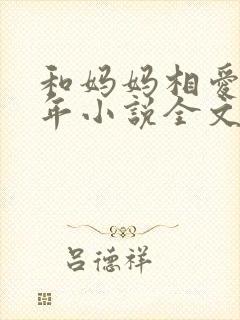 和妈妈相爱
年小说全文
吕德祥